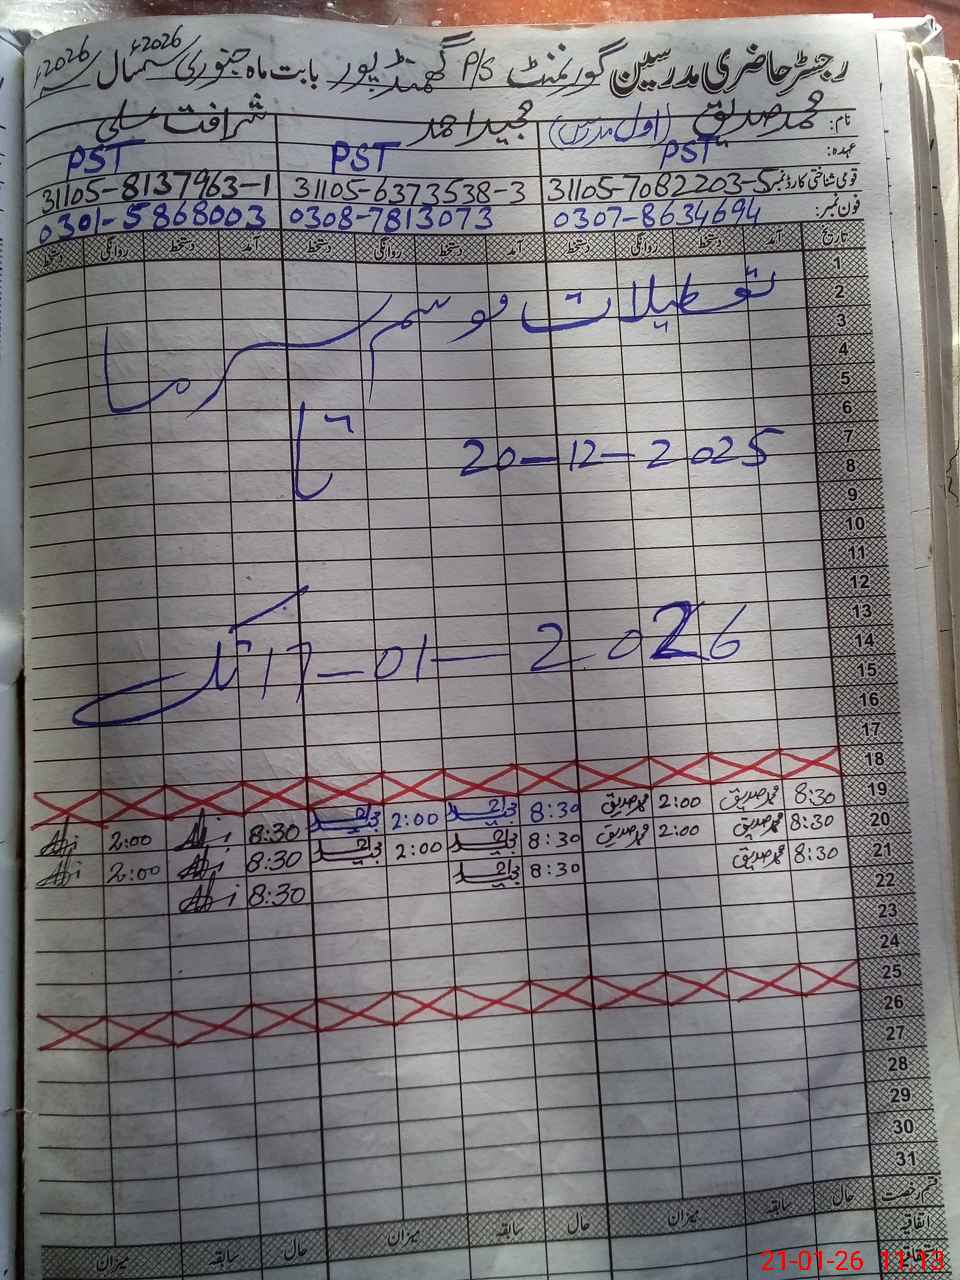 رجسٹر حاضری مدرسین گورنمنٹ P/S گھمنڈ پور بابت ماہ جنوری 2026ء شمال سنہ 2026ء
نام: محمد صدیق (اول مدرس) مجید احمد شرافت علی
عہدہ: PST PST PST
قومی شناختی کارڈ نمبر 31105-7082203-5 31105-6373538-3 31105-8137963-1
فون نمبر: 0307-8634694 0308-7813073 0301-5868003
تاریخ آمد دستخط روانگی دستخط آمد دستخط روانگی دستخط آمد دستخط روانگی دستخط
1
2
3
تعطیلات موسم سرما
4
5
6
7
20-12-2025 تا
8
9
10
11
12
13
14
17-01-2026 تک
15
16
17
18
19 8:30 محمد صدیق 2:00 محمد صدیق 8:30 2:00 8:30 2:00
20 8:30 محمد صدیق 2:00 محمد صدیق 8:30 2:00 8:30 2:00
21 8:30 محمد صدیق 8:30 8:30
22
23
24
25
26
27
28
29
30
31
قسم رخصت حال سابقہ میزان حال سابقہ میزان حال سابقہ میزان
اتفاقیہ
21-01-26 11:13